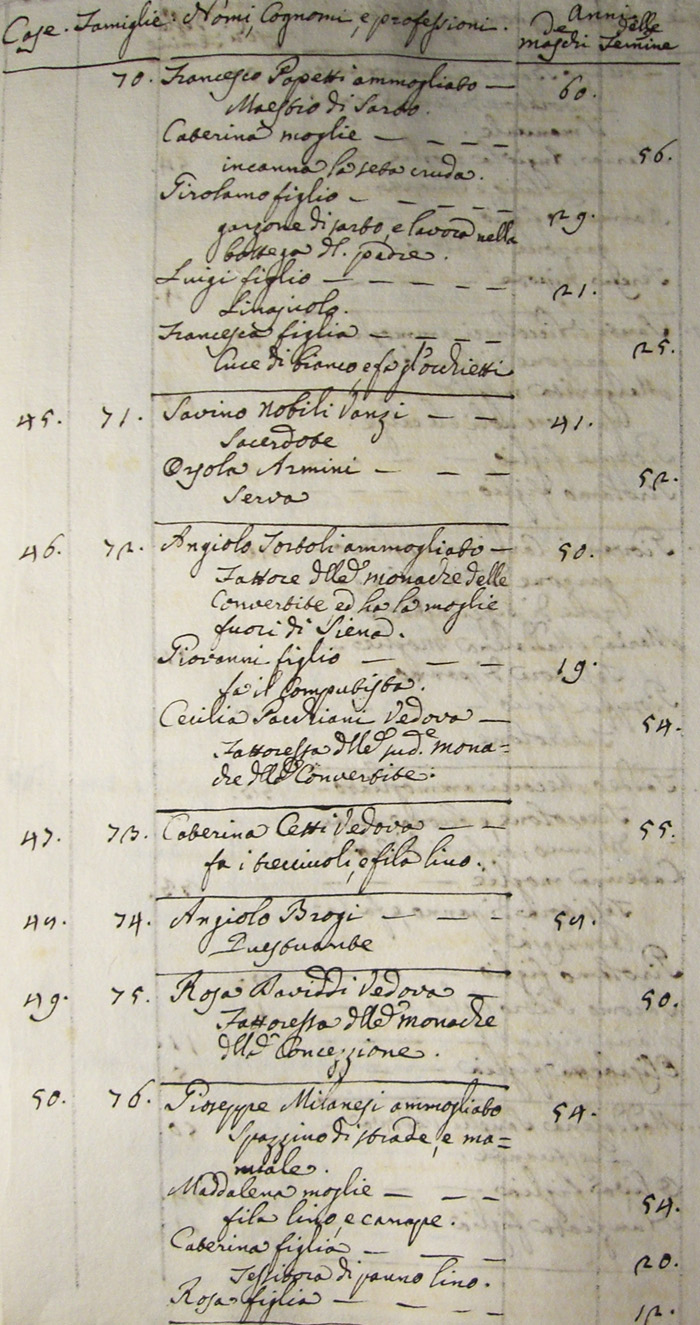 Case. Famiglie. Nomi, Cognomi, e professioni. Anni de maschi delle Femine
70. Francesco Papetti ammogliato — 60.
Maestro di Sarto.
Caterina moglie — — — — 56.
incanna la seta cruda.
Girolamo figlio — — — — 29.
garzone di sarto, e lavora nella
bottega del. padre.
Luigi figlio — — — — — 21.
Linajuolo.
Francesca figlia — — — — 25.
Cuce di bianco, e fa gl'occhietti
45. 71. Savino Nobili Vanzi — — 41.
Sacerdote
Orsola Armini — — — 52.
Serva
46. 72. Angiolo Sortoli ammogliato — 50.
Fattore delle monache delle
Convertite ed ha la moglie
fuori di Siena.
Giovanni figlio — — — 19.
fa il Computista.
Cecilia Pacchiani Vedova — 54.
Fattoressa delle sud.e mona=
che delle Convertite.
47. 73. Caterina Cetti Vedova — — 55.
fa i trecciuoli, e fila lino.
48. 74. Angiolo Brogi — — — 58.
Questuante
49. 75. Rosa Daviddi Vedova — 50.
Fattoressa delle monache
della Concezzione.
50. 76. Gioseppe Milanesi ammogliato 54.
Spazzino di strade, e ma=
niale.
Maddalena moglie — — — 54.
fila lino, e canape.
Caterina figlia — — — 20.
Tessitora di panno lino.
Rosa figlia — — — — 12.